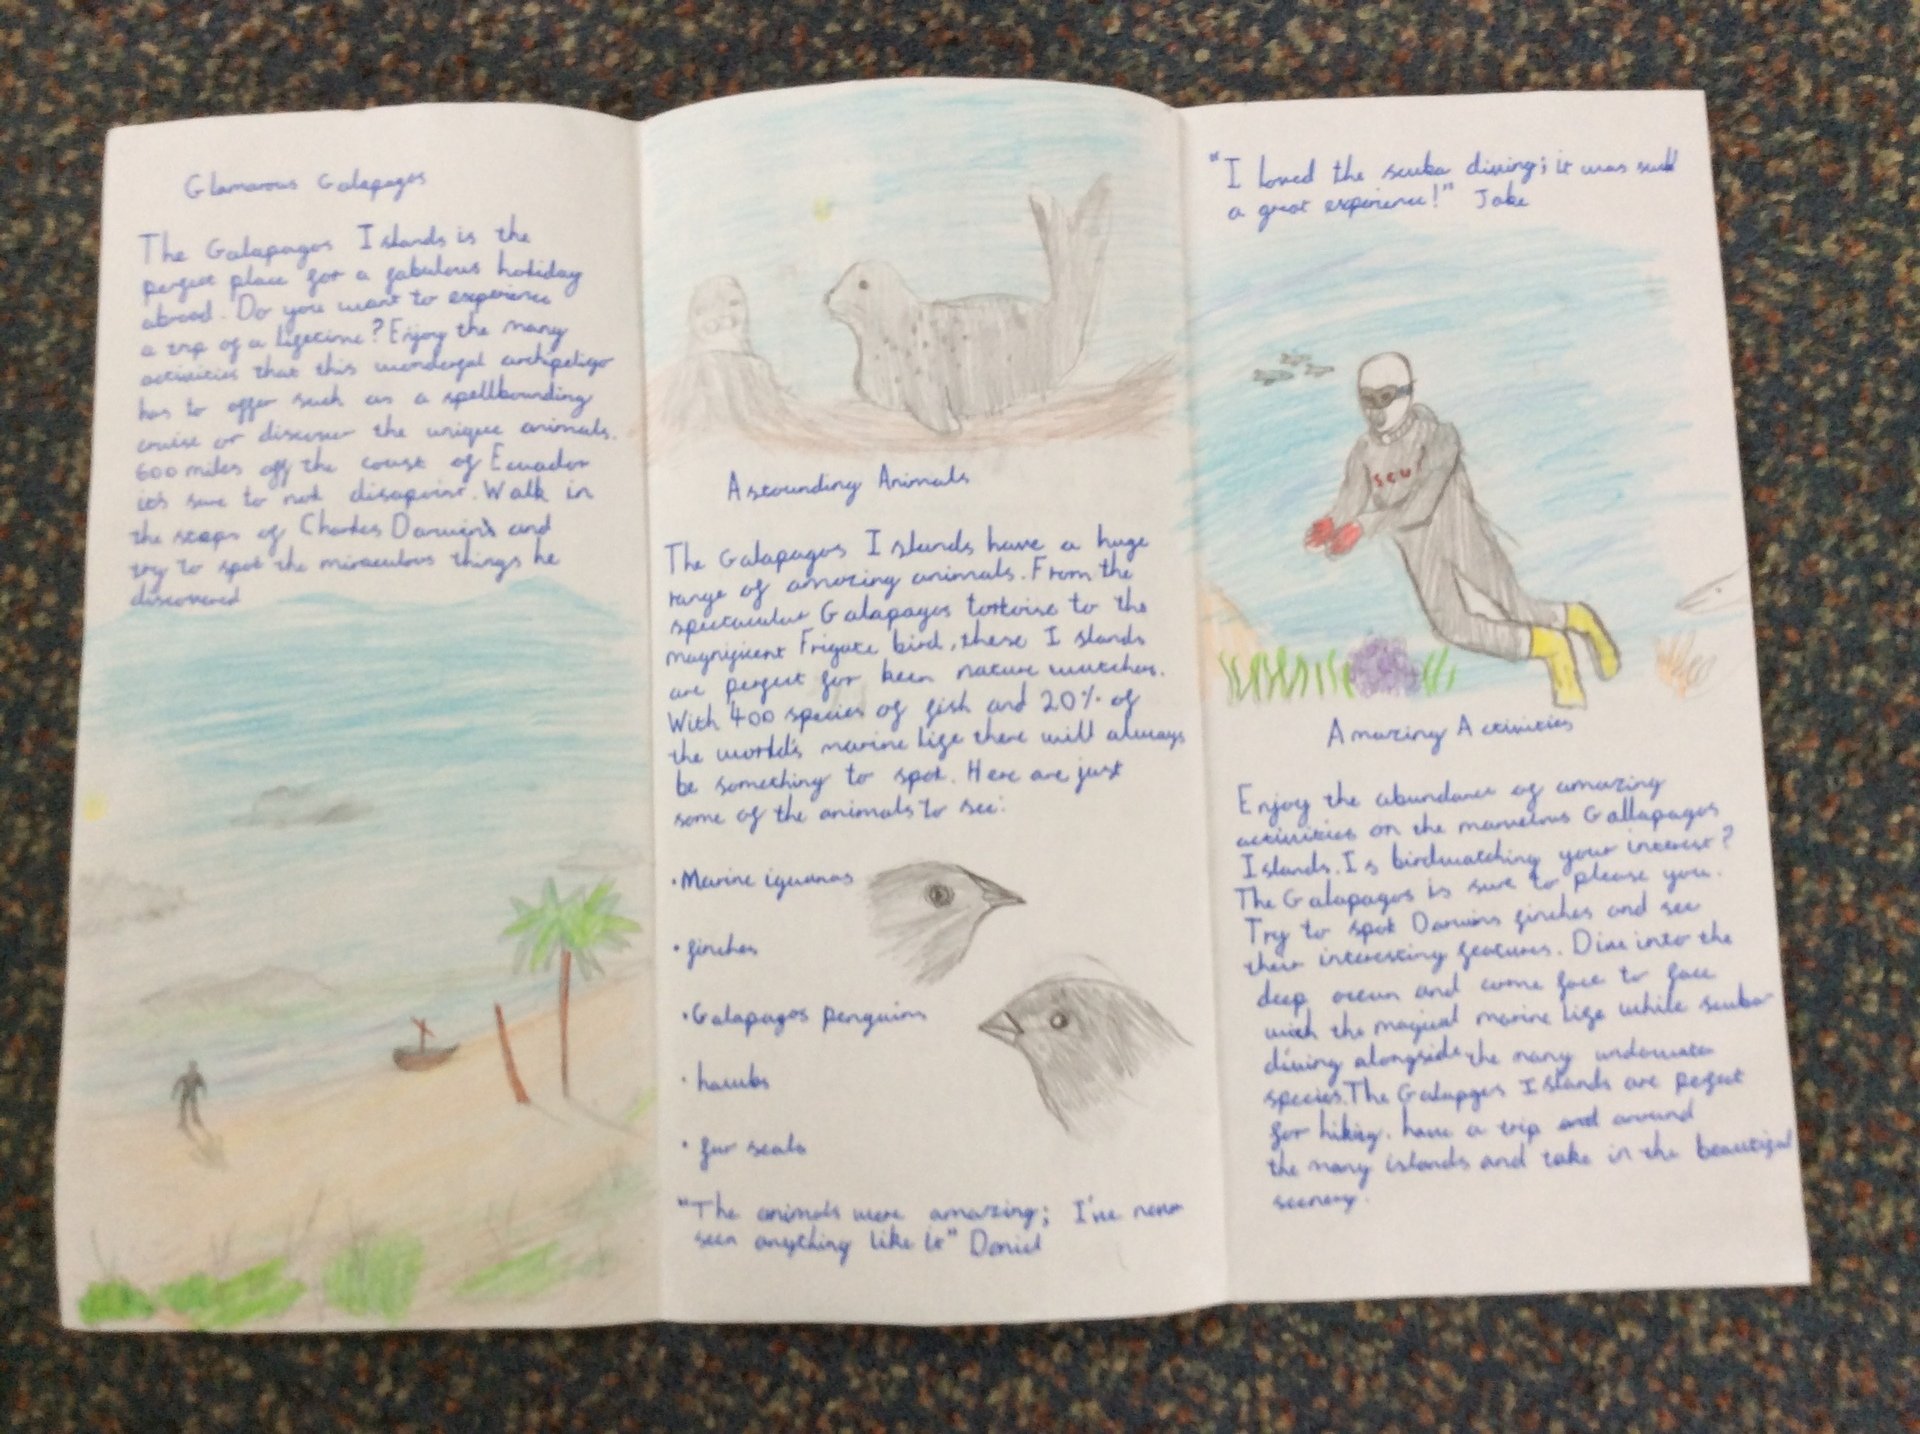 Glamarous Galapagos
The Galapagos Islands is the
perfect place for a fabulous holiday
abroad. Do you want to experience
a trip of a lifetime? Enjoy the many
activities that this wonderful archipeligo
has to offer such as a spellbounding
cruise or discover the unique animals.
600 miles off the coast of Ecuador
it's sure to not disapoint. Walk in
the steps of Charles Darwin's and
try to spot the miraculous things he
discovered
Astounding Animals
The Galapagos Islands have a huge
range of amazing animals. From the
spectacular Galapagos tortoise to the
magnificent Frigate bird, these Islands
are perfect for keen nature watchers.
With 400 species of fish and 20% of
the world's marine life there will always
be something to spot. Here are just
some of the animals to see:
• Marine iguanas
• finches
• Galapagos penguins
• hawks
• fur seals
"The animals were amazing; I've never
seen anything like it" Daniel
"I loved the scuba diving; it was such
a great experience!" Jake
SCU
Amazing Activities
Enjoy the abundance of amazing
activities on the marvelous Gallapagos
Islands. Is birdwatching your interest?
The Galapagos is sure to please you.
Try to spot Darwins finches and see
their interesting features. Dive into the
deep ocean and come face to face
with the magical marine life while scuba
diving alongside the many underwater
species. The Galapgos Islands are perfect
for hiking. have a trip around
the many islands and take in the beautiful
scenery.